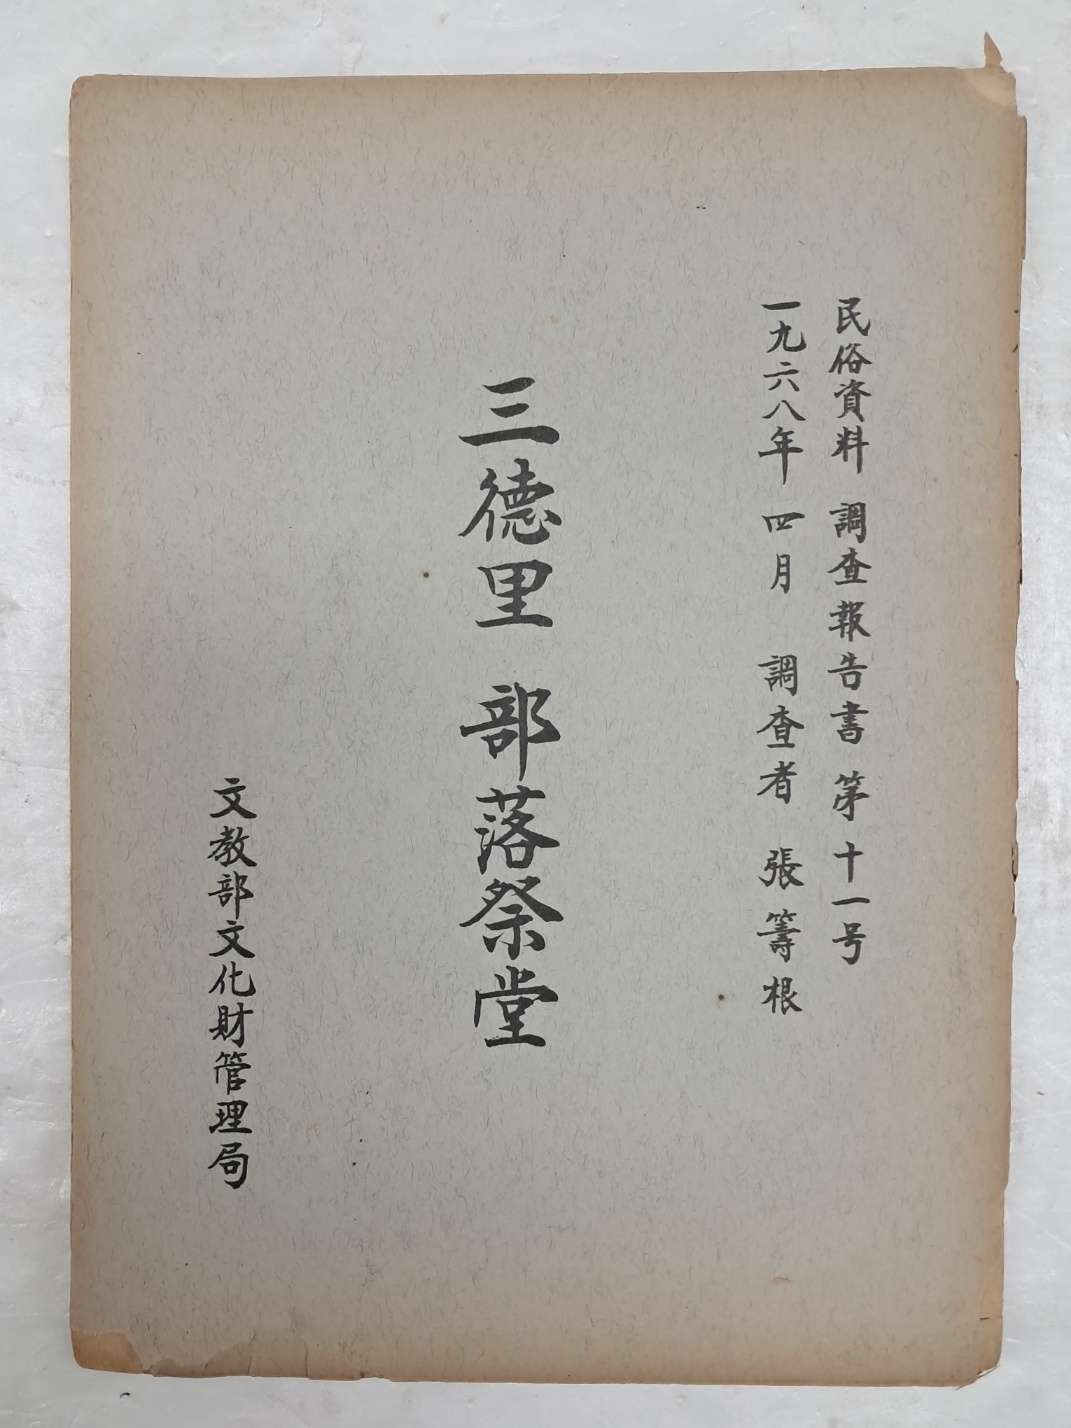 民俗資料 調査報告書 第十一号
一九六八年 四月 調査者 張籌根
三德里 部落祭堂
文教部文化財管理局